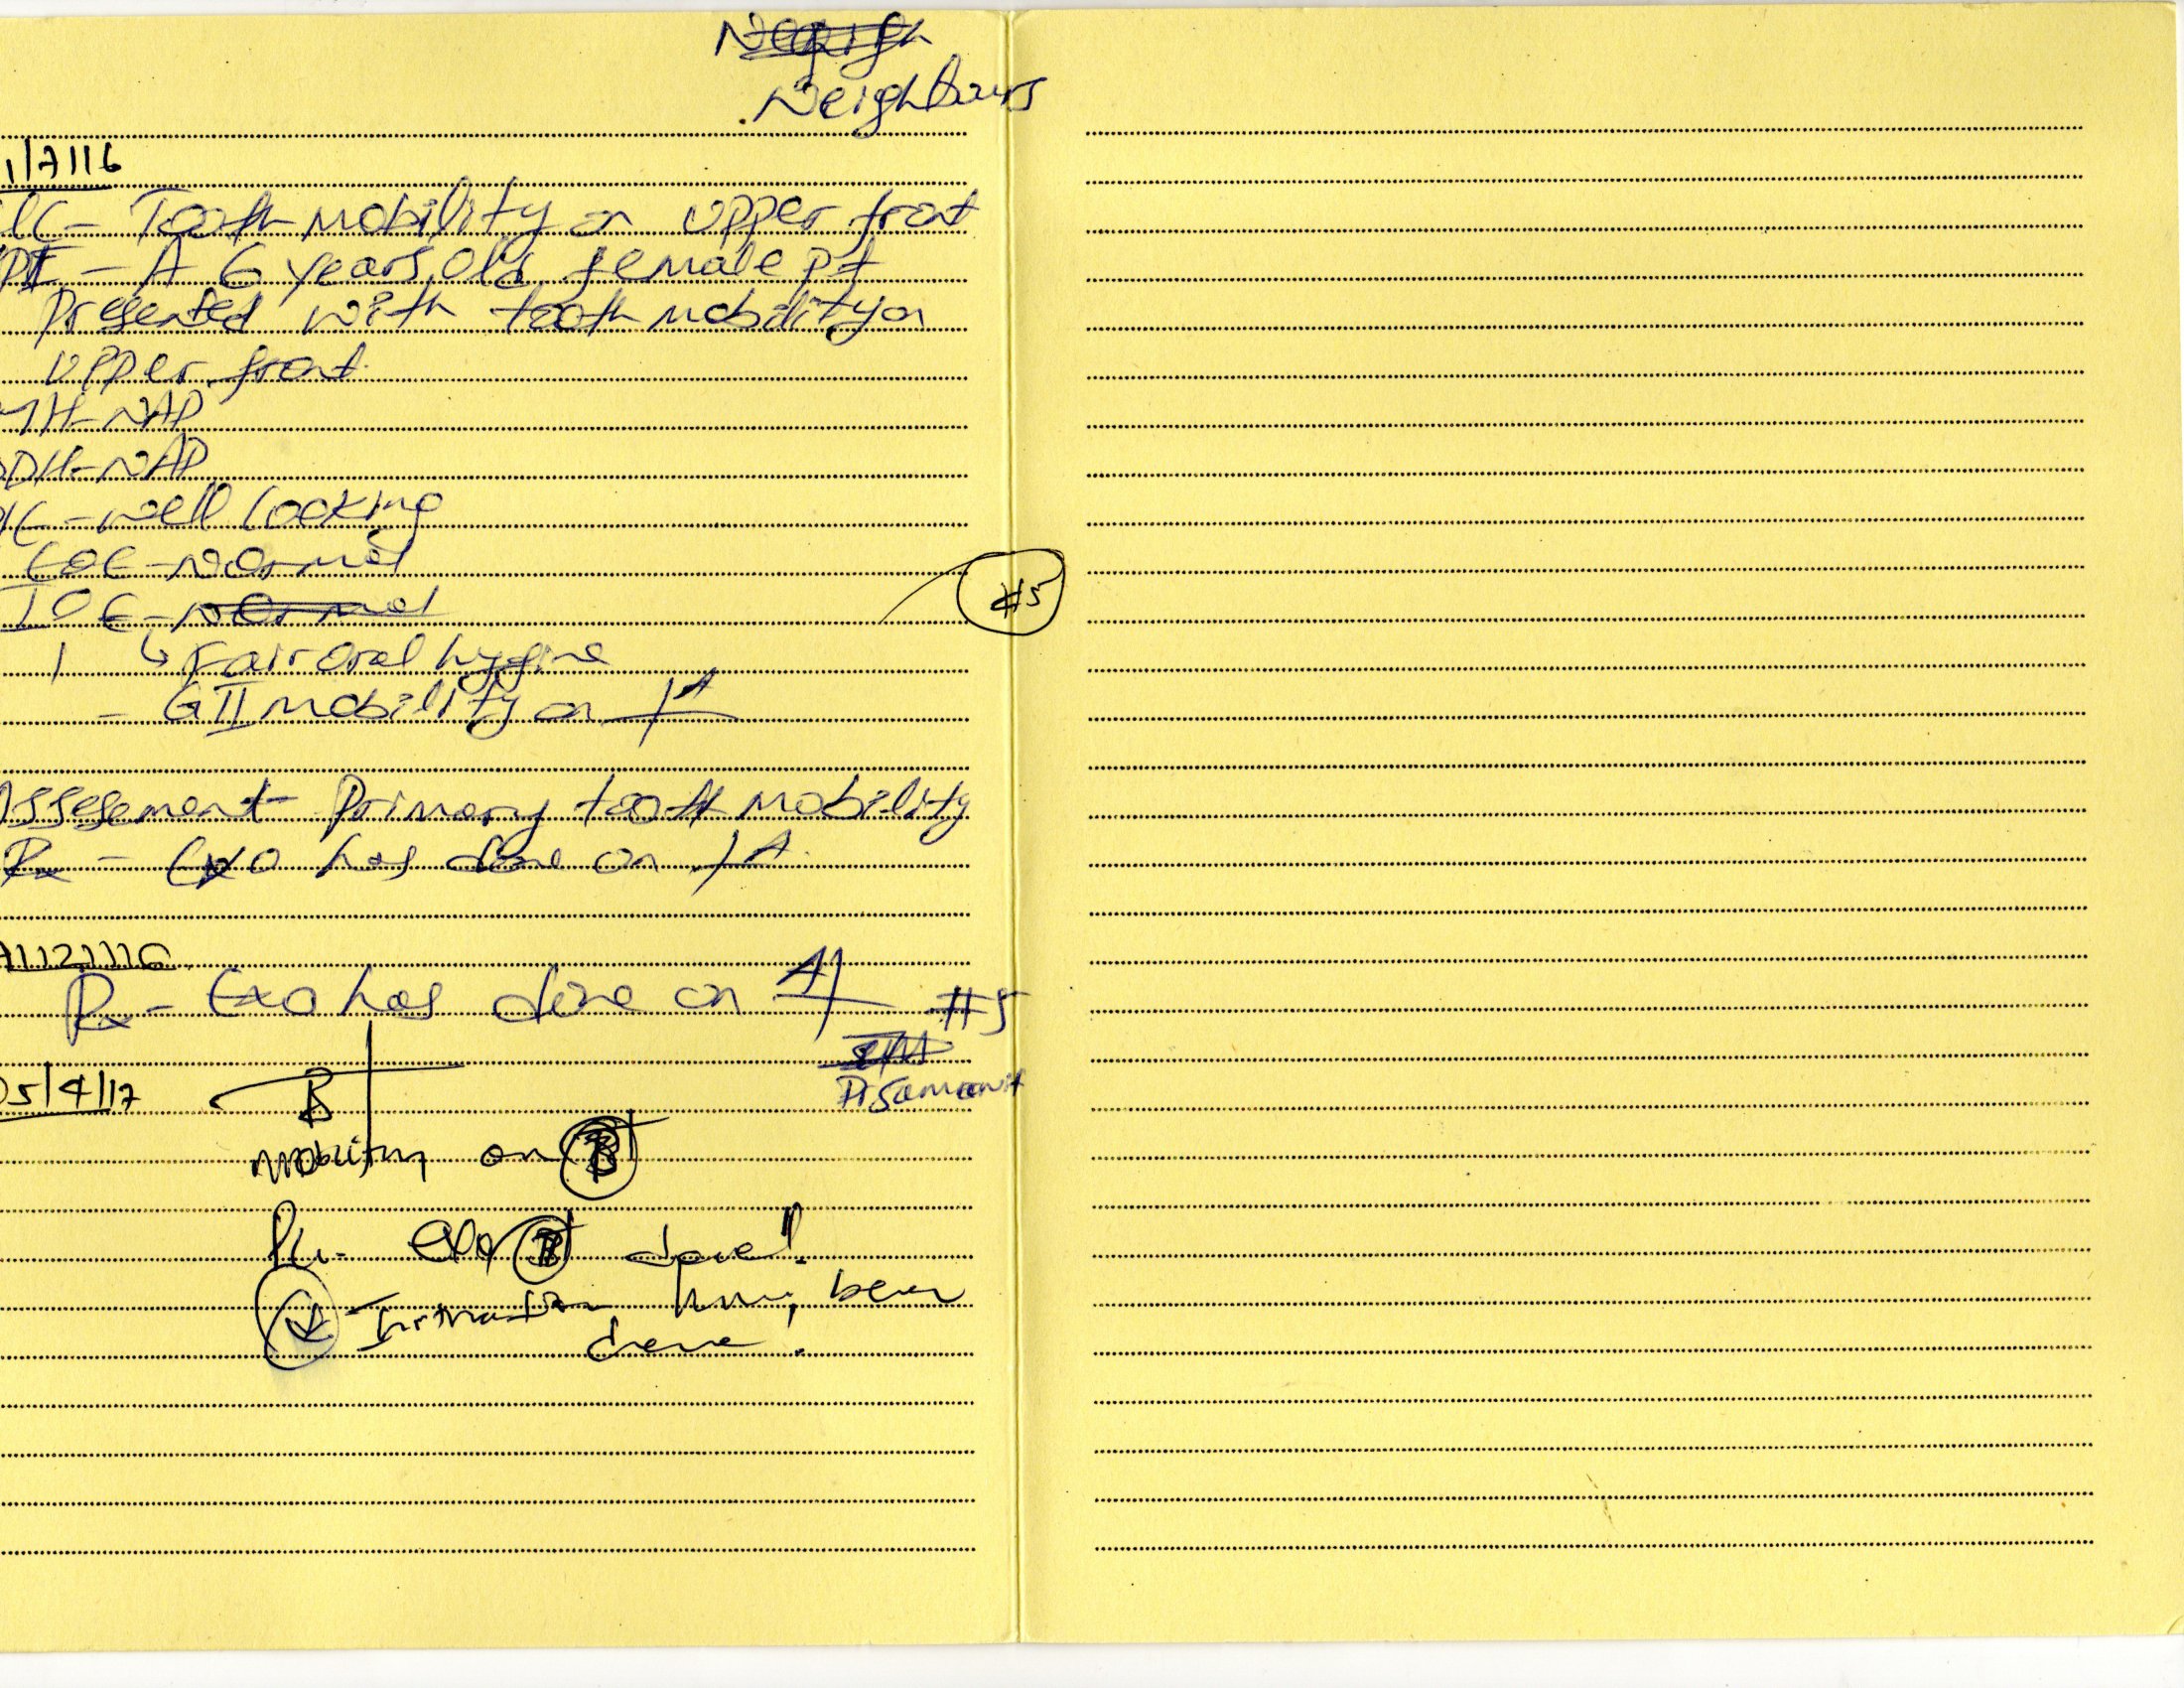 Neighbours
1/7/16
CC - Tooth mobility on upper front
PI - A 6 years old female pt
Presented with tooth mobility on
upper front.
MH - NAP
DH - NAP
well looking
EOE - Normal
IOE - normal
#5
↳ Fair oral hygine
- GII mobility on |A
Assesement - Primary tooth mobility
Rx - Exo has done on |A.
7/12/16
Rx - Exo has done on A| #5
05/4/17 B|
mobility on B|
Rx - Exo B| done!
have been
done.